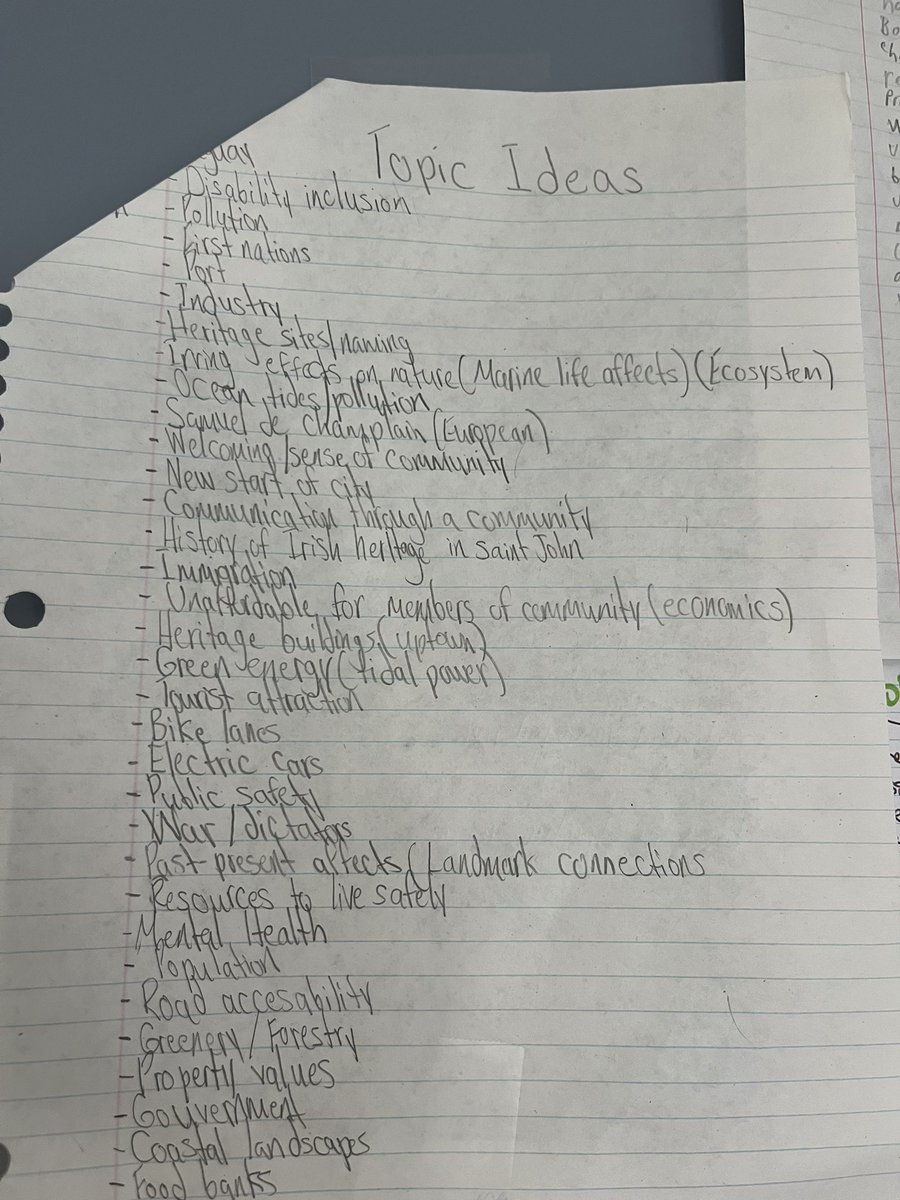 Topic Ideas
- Disability inclusion
- Pollution
- First nations
- Port
- Industry
- Heritage sites/naming
- Irving effects on nature (Marine life affects) (Ecosystem)
- Ocean tides/pollution
- Samuel de Champlain (European)
- Welcoming/sense of community
- New start of city
- Communication through a community
- History of Irish heritage in Saint John
- Immigration
- Unaffordable for members of community (economics)
- Heritage buildings (uptown)
- Green energy (tidal power)
- Tourist attraction
- Bike lanes
- Electric cars
- Public safety
- War/dictators
- Past present affects/Landmark connections
- Resources to live safely
- Mental Health
- Population
- Road accesability
- Greenery/Forestry
- Property values
- Gouvernment
- Coastal landscapes
- Food banks